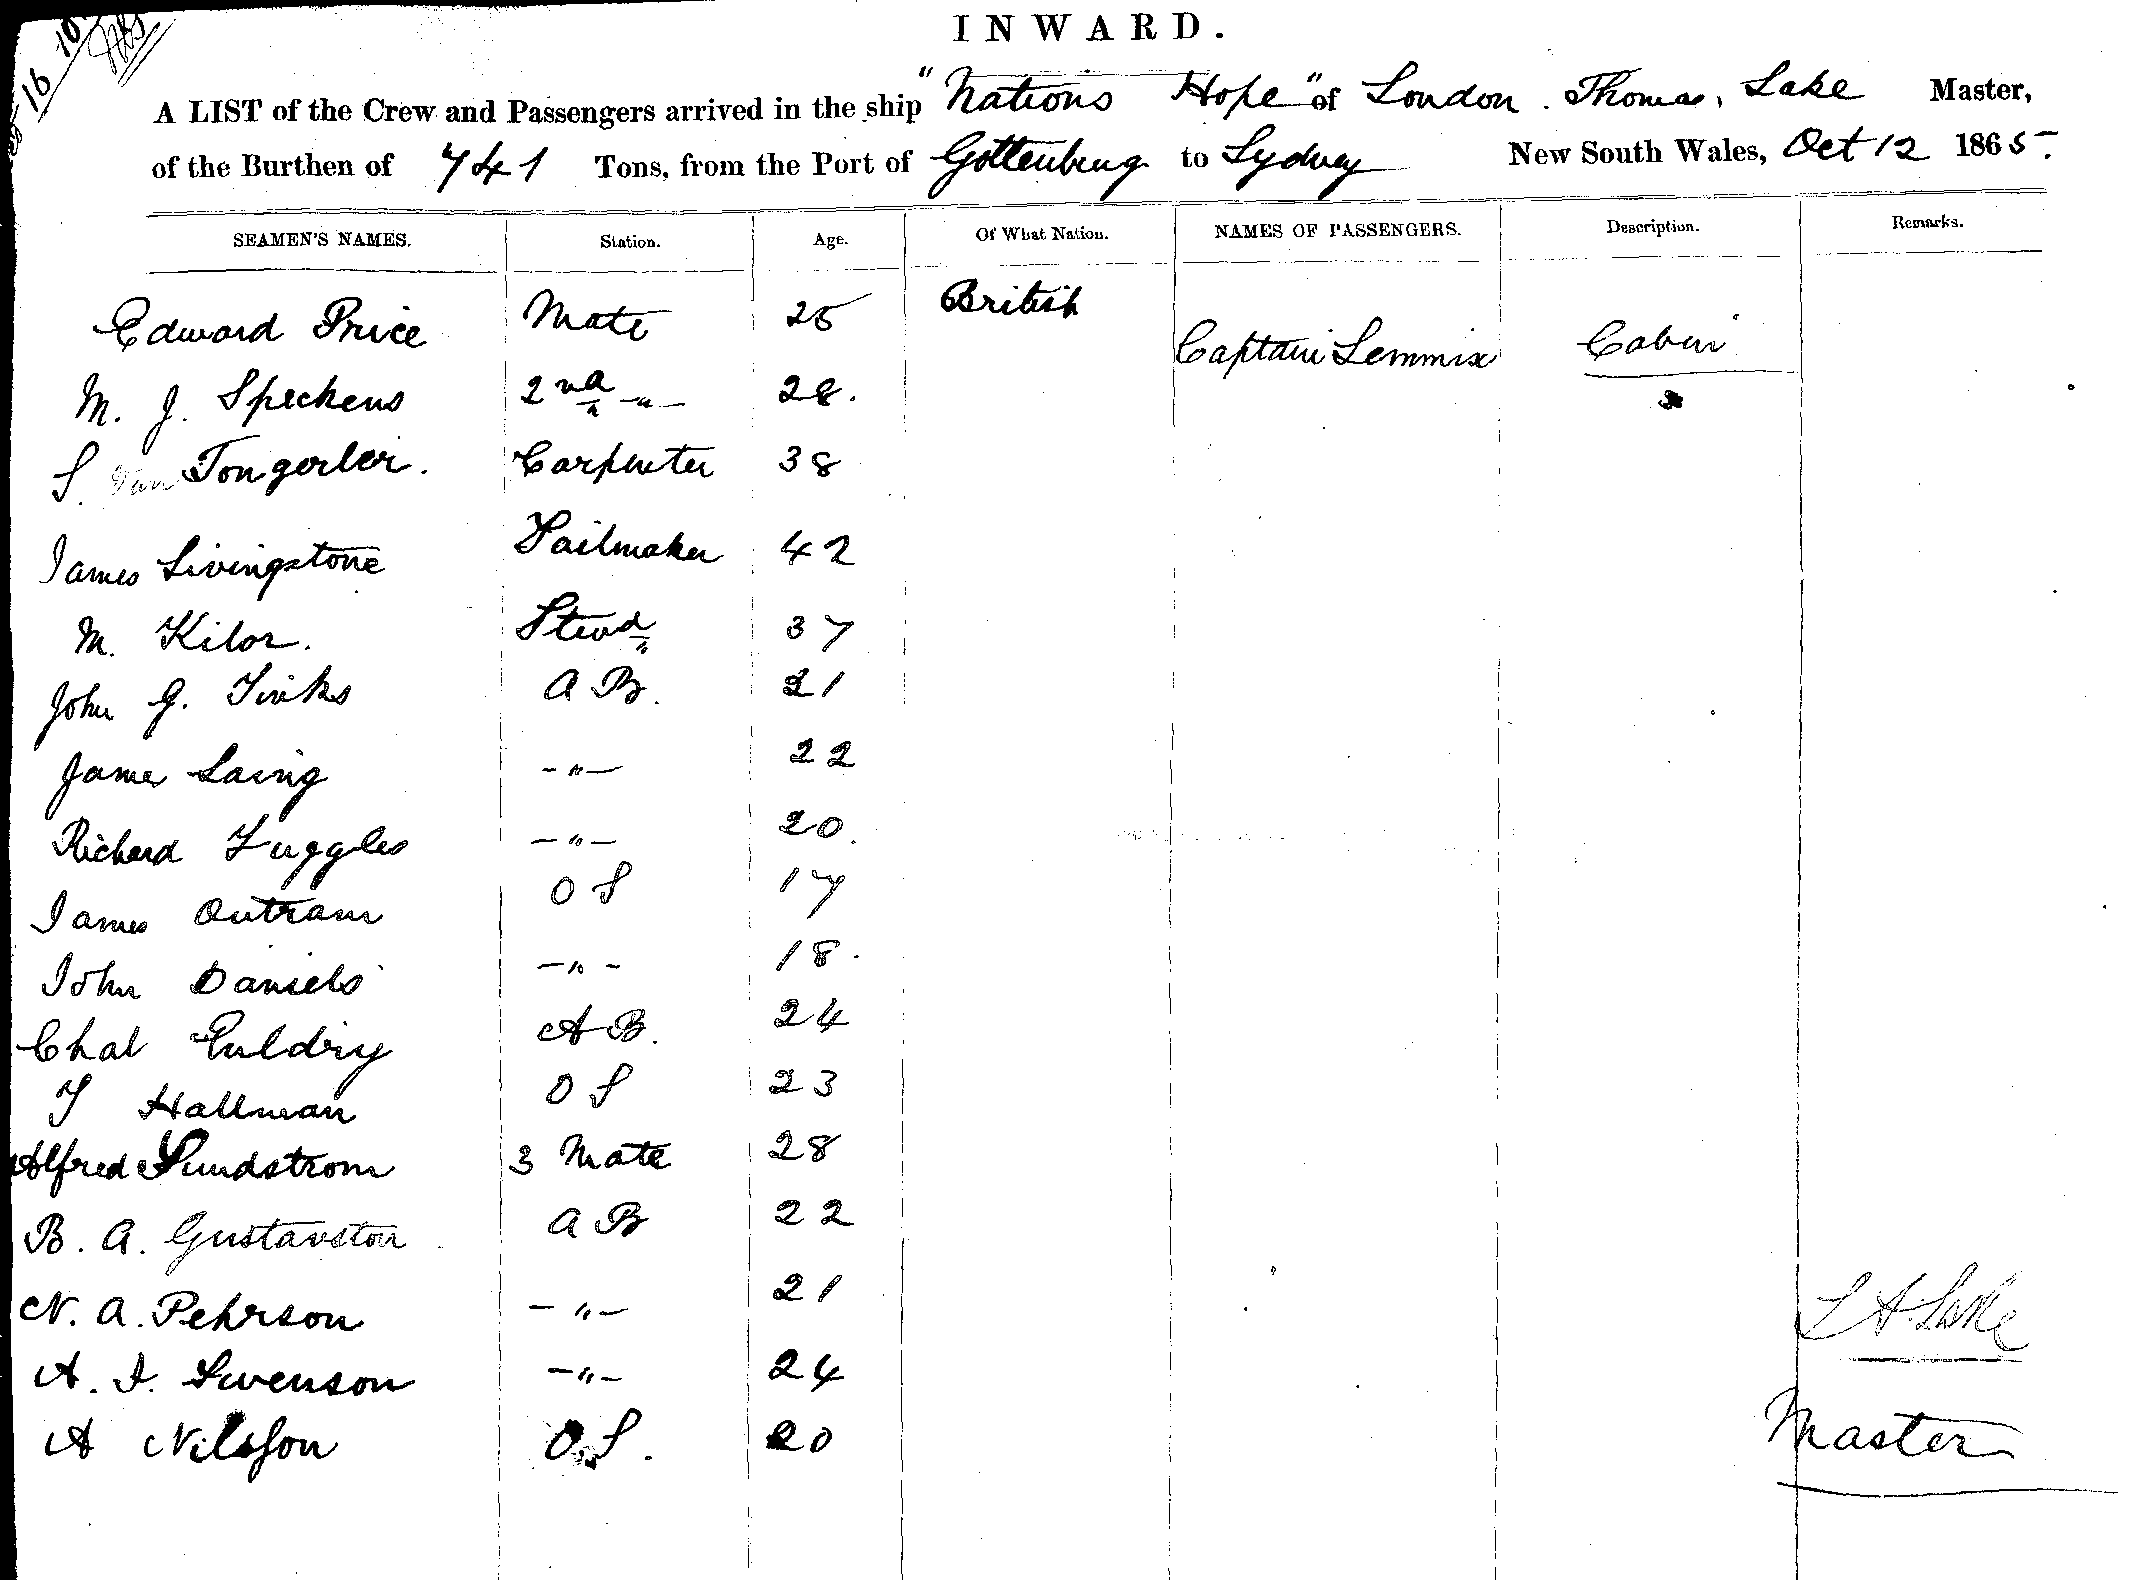 INWARD.
A LIST of the Crew and Passengers arrived in the ship "Nations Hope" of London. Thomas, Lake Master,
of the Burthen of 741 Tons, from the Port of Gottenburg to Sydney New South Wales, Oct 12 1865.
SEAMEN'S NAMES. Station. Age. Of What Nation. NAMES OF PASSENGERS. Description. Remarks.
Edward Price Mate 25 British
Captain Lemmix Cabin
M. J. Speckens 2nd -"- 28.
S. Van Tongerler. Carpenter 38
James Livingstone Sailmaker 42
M. Kilor. Stewd 37
John G. A B. 21
James Laing -"- 22
Richard Fuggles -"- 20.
James Outram O S 17
John Daniels -"- 18.
Chal A B. 24
Hallman O S 23
Alfred Sundstrom 3 Mate 28
B. A. Gustavston A B 22
N. A. Pehrson -"- 21
A. I. Swenson -"- 24
A Nilsson O.S. 20
Lake
Master